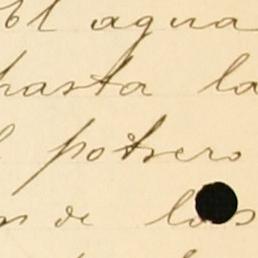 el agua
hasta la
potrero
de los